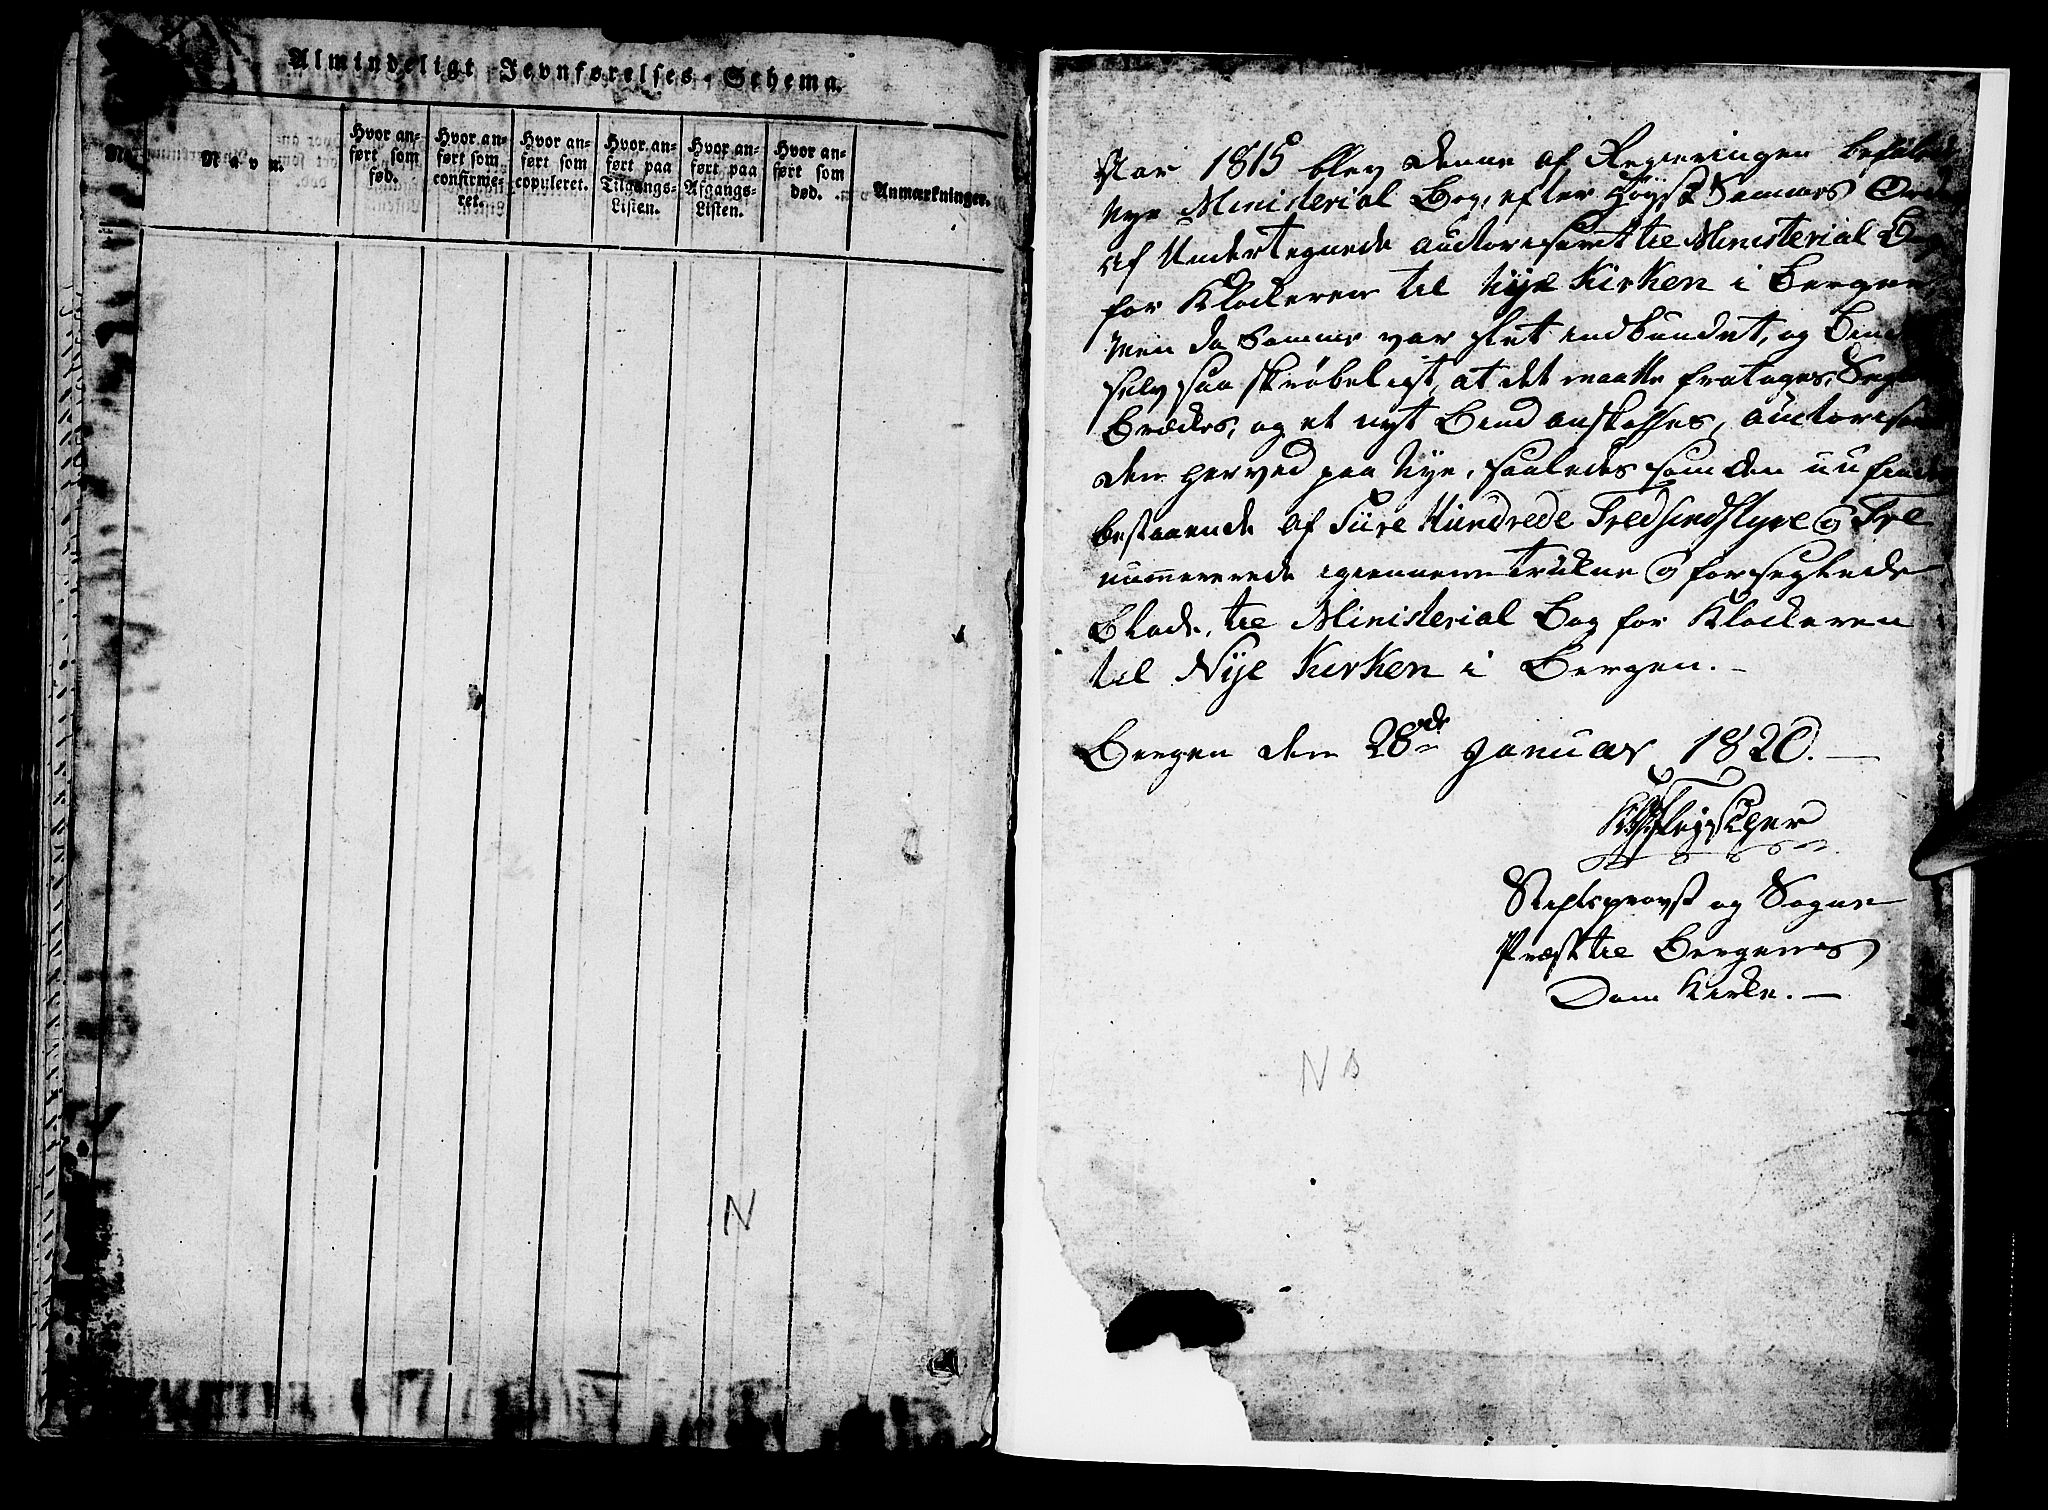 Almindeligt Jevnførelses-Schema.
N
Navn.
Hvor an-
ført som
fød.
Hvor an-
ført som
confirme-
ret.
Hvor an-
ført som
copuleret.
Hvor an-
ført paa
Tilgangs-
Listen.
Hvor an-
ført paa
Afgangs-
Listen.
Hvor an-
ført som
død.
Anmærkninger.
N
Aar 1815 blev denne af Regieringen befalede
nye Ministerial Bog, efter Høyst Sammes Ordre
af Undertegnede auctoriseret til Ministerial Bog
for Klockeren til Nye Kirken i Bergen
Men da Samme var slet indbundet, og Bindet
selv saa skrøbeligt, at det maatte fratages, Seglet
Brædes, og et nyt Bind anskaffes, auctoriseres
den herved paa Nye, saaledes som den nu findes
bestaaende af Fiire Hundrede Tredsindstyve og Tre
nummererede igiennemtrukne og forseglede
Blade, til Ministerial Bog for Klockeren
til Nye Kirken i Bergen.-
Bergen den 28de Januar 1820.-
Stiftsprovst og Sogne
Præst til Bergens
Dom Kirke.-
N